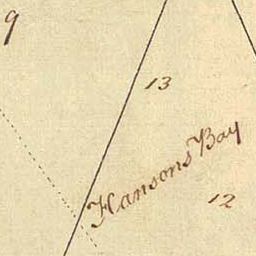 9
13
Hansons Bay
12